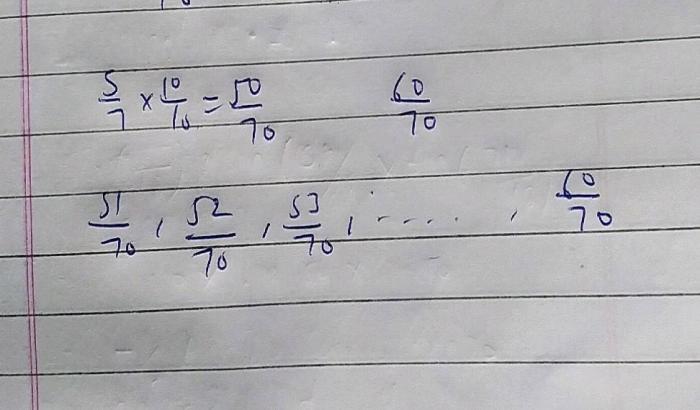 5/7 × 10/10 = 50/70 60/70
51/70, 52/70, 53/70, ....., 60/70